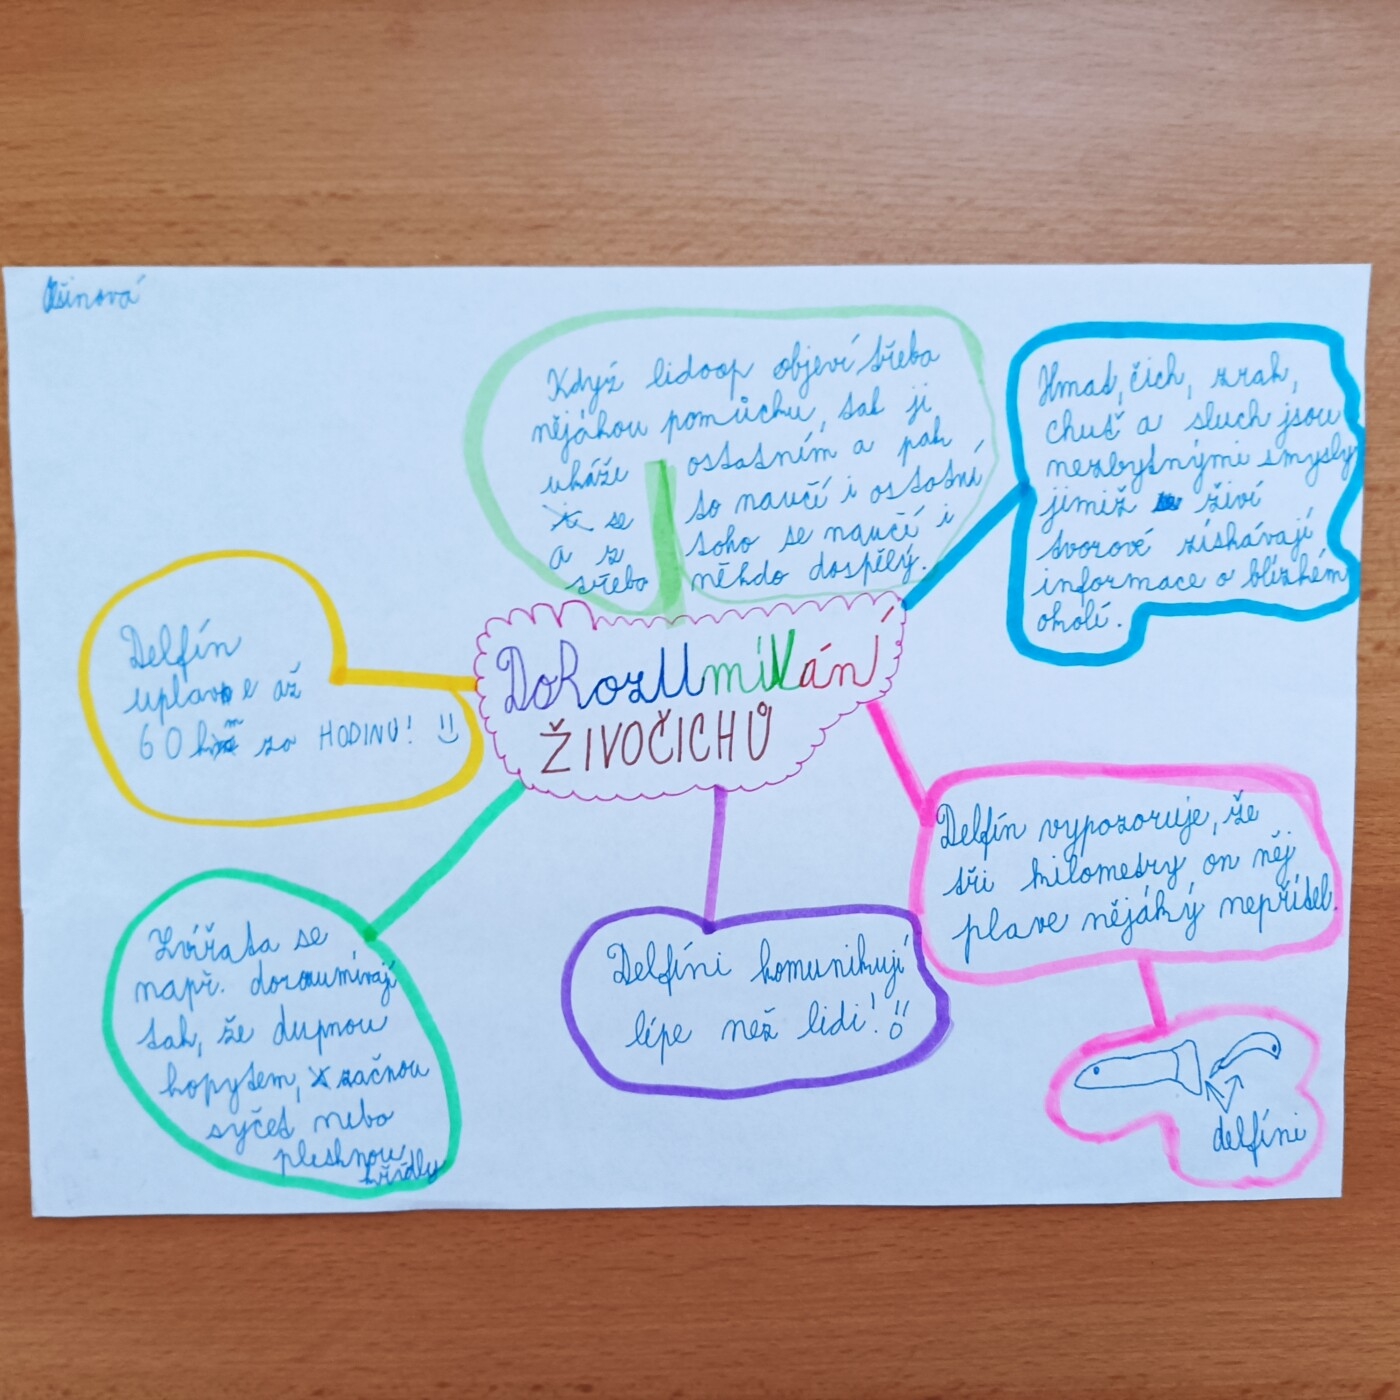 Když lidoop objeví třeba
nějákou pomůcku, tak ji
ukáže ostatním a pak
se to naučí i ostatní
a z toho se naučí i
třeba někdo dospělý.
Hmat, čich, zrak,
chuť a sluch jsou
nezbytnými smysly
jimiž živí
tvorové získávají
informace o blízkém
okolí.
DoRozUmíVání
ŽIVOČICHŮ
Delfín
uplave až
60 km za HODINU!
Delfín vypozoruje, že
tři kilometry on něj
plave nějáký nepřítel.
Zvířata se
např. dorozumívají
tak, že dupnou
kopytem, začnou
syčet nebo
plesknou
křídly
Delfíni komunikují
lépe než lidi!
delfíni